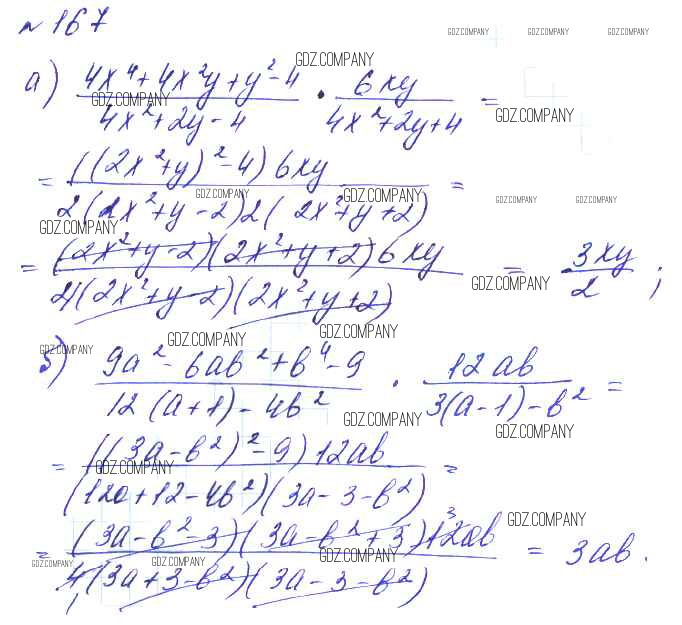 № 167
GDZ.COMPANY GDZ.COMPANY GDZ.COMPANY
GDZ.COMPANY
а) (4x⁴+4x²y+y²-4)/(4x²+2y-4) · 6xy/(4x²+2y+4) =
GDZ.COMPANY GDZ.COMPANY
= ((2x²+y)²-4) 6xy / 2(2x²+y-2)2(2x²+y+2) =
GDZ.COMPANY GDZ.COMPANY GDZ.COMPANY GDZ.COMPANY
GDZ.COMPANY
= (2x²+y-2)(2x²+y+2)6xy / 4(2x²+y-2)(2x²+y+2) = 3xy/2 ;
GDZ.COMPANY
GDZ.COMPANY GDZ.COMPANY
GDZ.COMPANY
б) (9a²-6ab²+b⁴-9)/(12(a+1)-4b²) · 12ab/(3(a-1)-b²) =
GDZ.COMPANY GDZ.COMPANY
= ((3a-b²)²-9)12ab / (12a+12-4b²)(3a-3-b²) =
GDZ.COMPANY
= (3a-b²-3)(3a-b²+3)12ab 3 / 4(3a+3-b²)(3a-3-b²) 1 = 3ab.
GDZ.COMPANY
GDZ.COMPANY GDZ.COMPANY GDZ.COMPANY